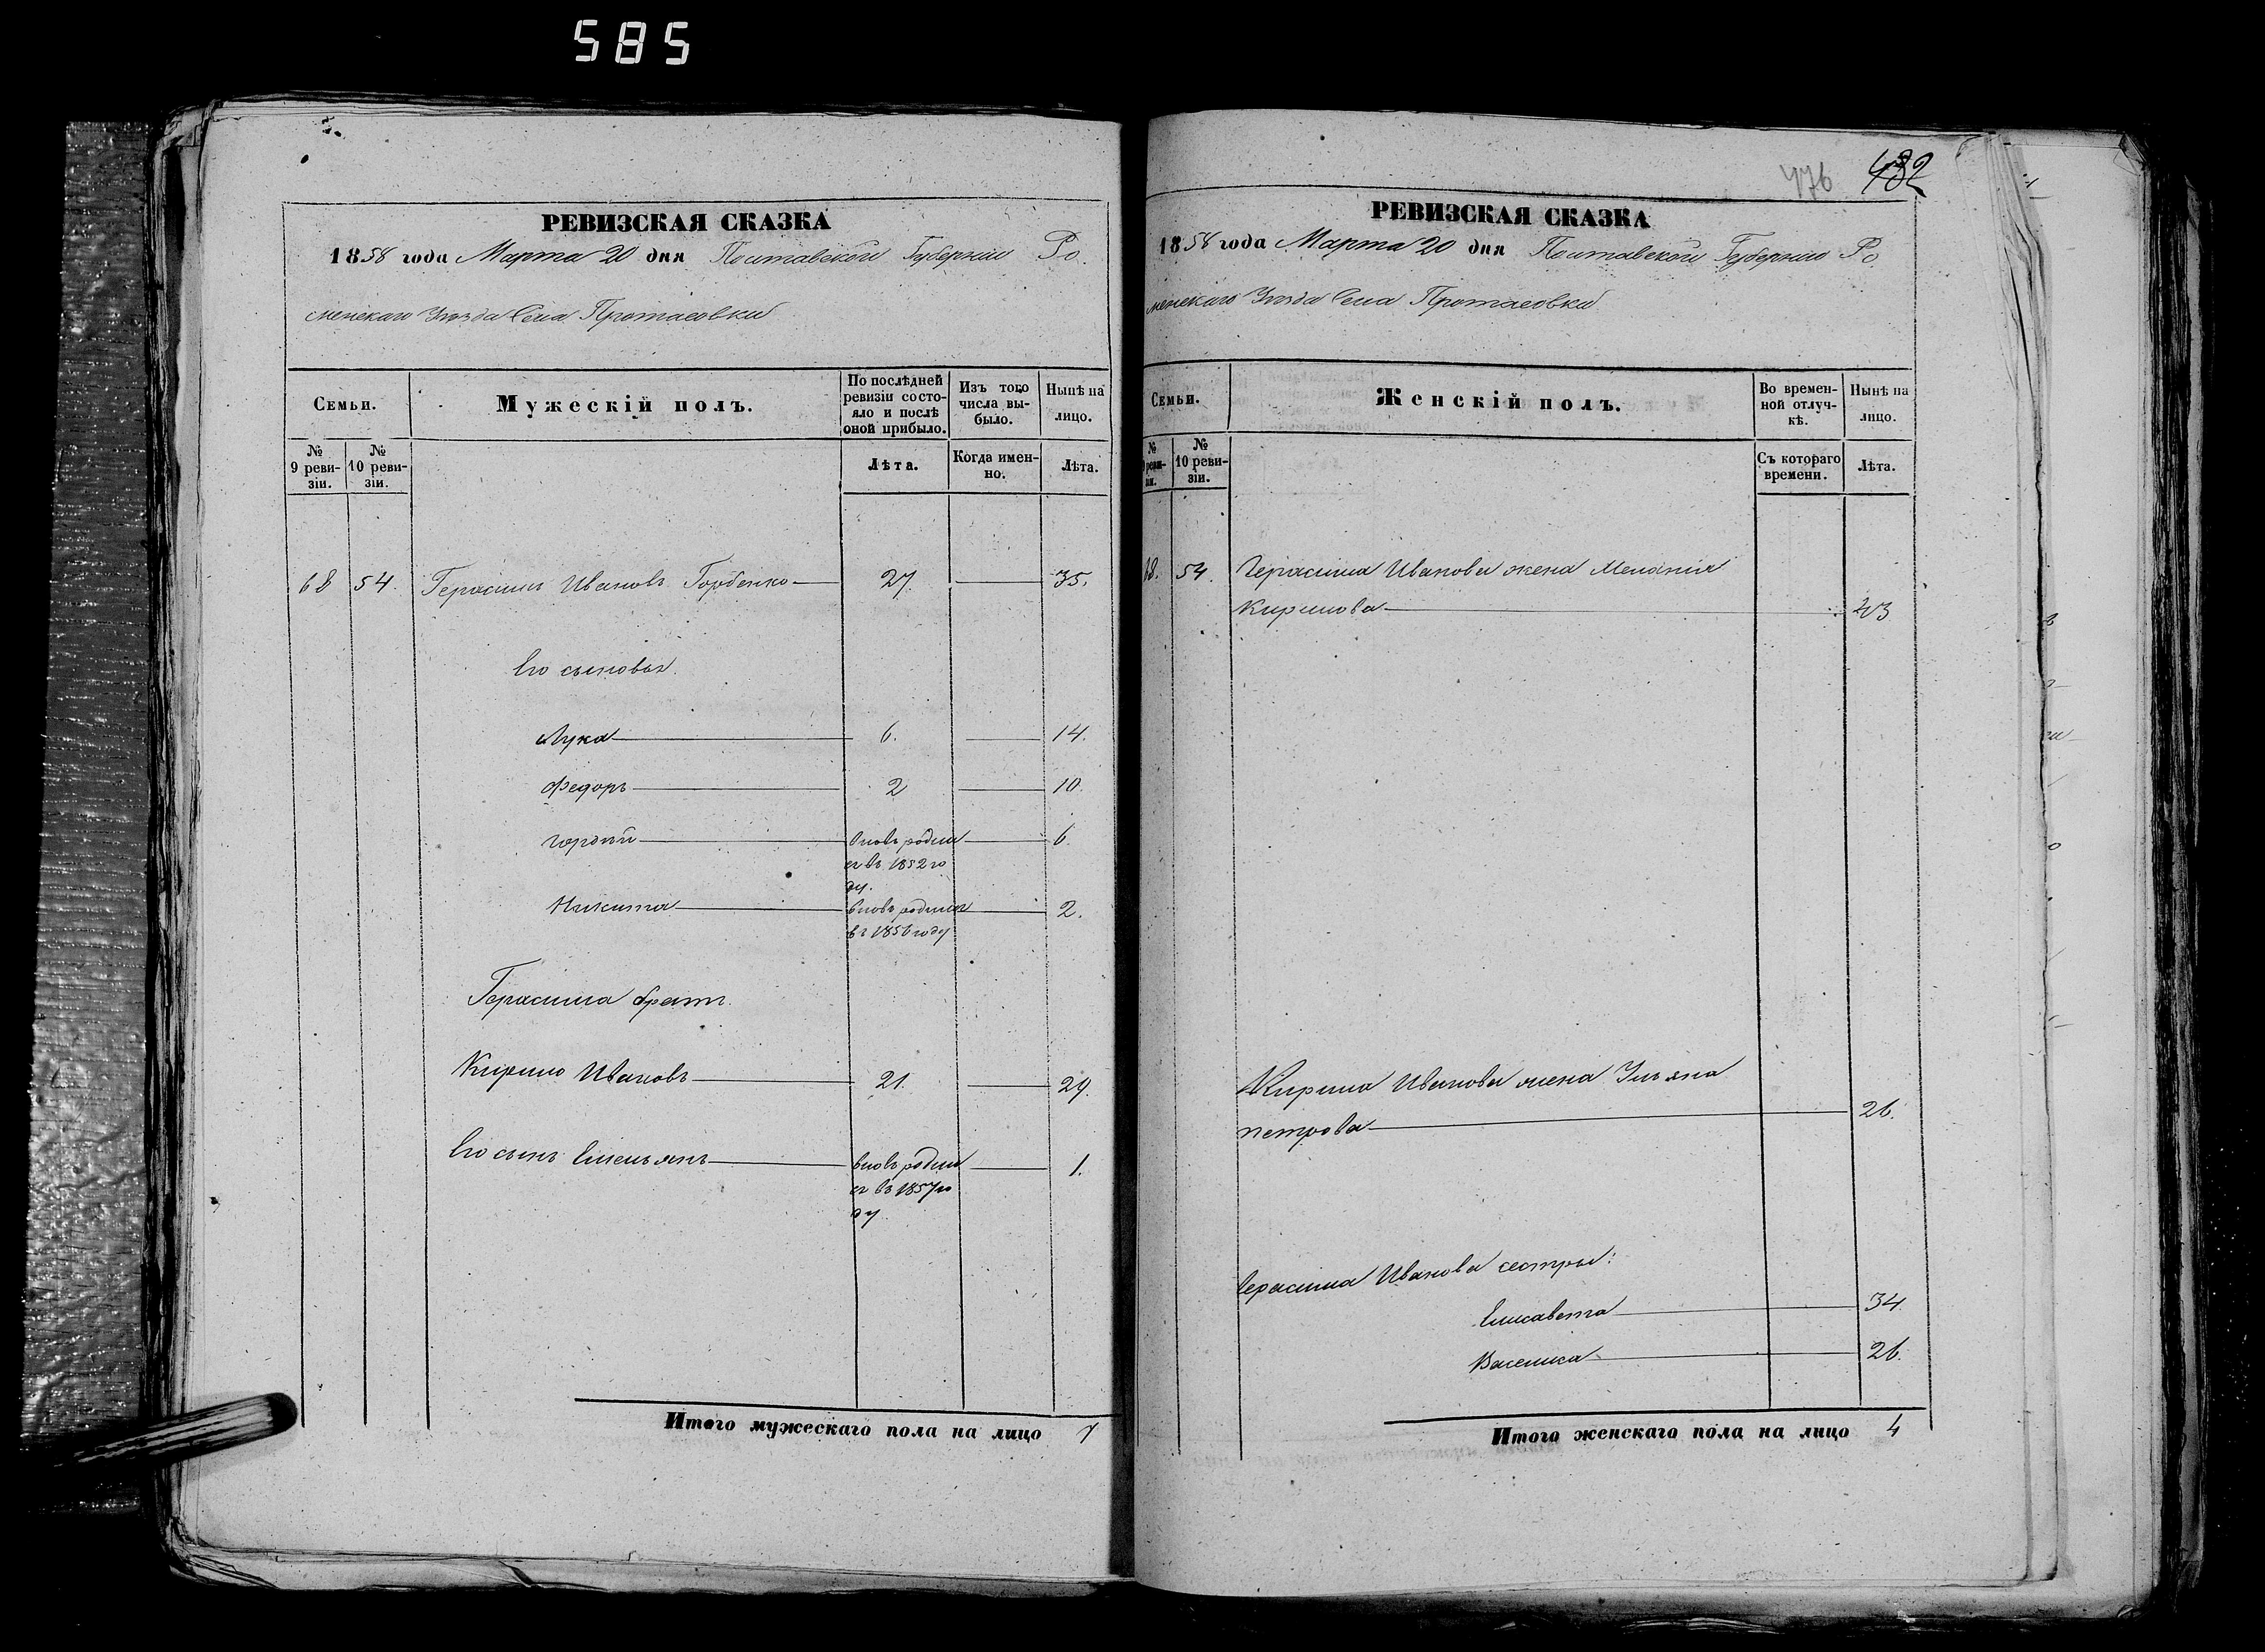 585
РЕВИЗСКАЯ СКАЗКА
1858 года Марта 20 дня Полтавской Губернии Ро
менскаго Уѣзда Села Протасовки
Семьи.
Мужескій полъ.
По послѣдней ревизіи состояло и послѣ оной прибыло.
Изъ того числа выбыло.
Нынѣ на лицо.
№ 9 ревизіи.
№ 10 ревизіи.
Лѣта.
Когда именно.
Лѣта.
68 54. Герасимъ Ивановъ Горбенко 27. 35.
Его сыновья.
Лука 6. 14.
Федоръ 2 10.
вновь родил 6.
ся въ 1852 го
ду.
Никита вновь родился 2.
въ 1856 году
Герасима братъ
Кирило Ивановъ 21. 29.
Его сынъ Емельянъ вновь родил 1.
ся въ 1857 го
ду.
Итого мужескаго пола на лицо 7
476 432
РЕВИЗСКАЯ СКАЗКА
1858 года Марта 20 дня Полтавской Губернии Ро
менскаго Уѣзда Села Протасовки
Семьи.
Женскій полъ.
Во временной отлучкѣ.
Нынѣ на лицо.
№ 9 ревизіи.
№ 10 ревизіи.
Съ котораго времени.
Лѣта.
68. 54. Герасима Иванова жена Меланія
Кирилова 43
Кирила Иванова жена Ульяна
петрова 26.
Герасима Иванова сестры:
Елисавета 34.
Василиса 26.
Итого женскаго пола на лицо 4